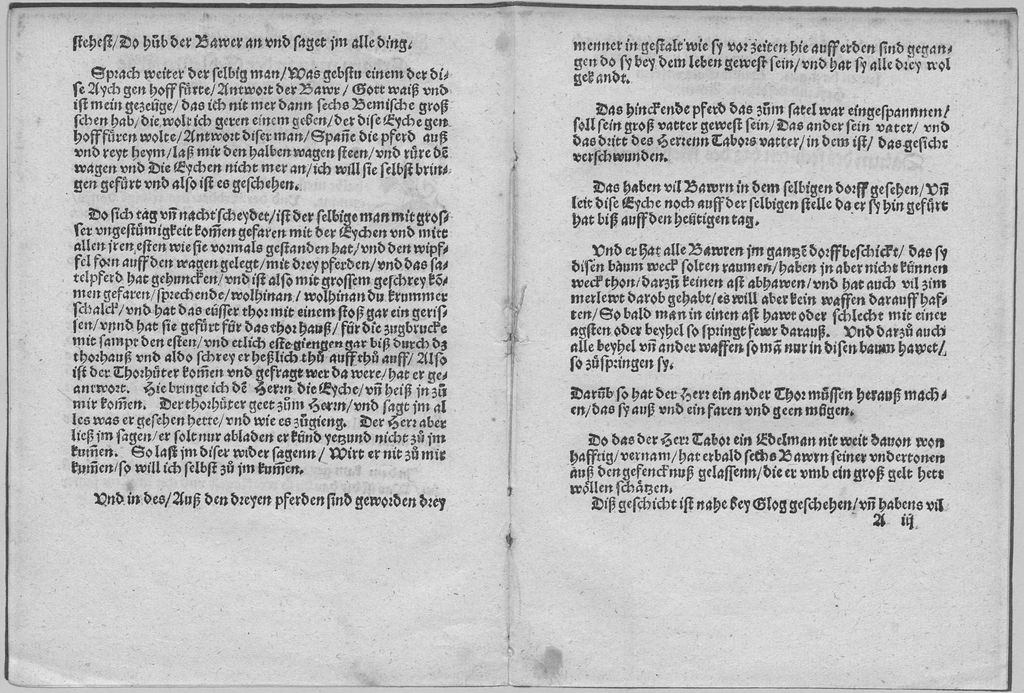 stehest/ Do hůb der Bawer an vnd saget jm alle ding.
Sprach weiter der selbig man/ Was gebstu einem der di-
se Aychgen hoff fürte/ Antwort der Bawr/ Gott waiß vnd
ist mein gezeüge/ das ich nit mer dann sechs Bemische groß
schen hab/ die wolt ich geren einem geben/ der dise Eyche gen
hoff füren wolte/ Antwort diser man/ Spañe die pferd auß
vnd reyt heym/ laß mir den halben wagen steen/ vnd rüre dē
wagen vnd Die Eychen nicht mer an/ ich will sie selbst brin-
gen gefürt vnd also ist es geschehen.
Do sich tag vñ nacht scheydet/ ist der selbige man mit gros-
ser vngestümigkeit kom̃en gefaren mit der Eychen vnd mitt
allen jren esten wie sie vormals gestanden hat/ vnd den wipf-
fel forn auff den wagen gelegt/ mit drey pferden/ vnd das sa-
telpferd hat gehuncken/ vnd ist also mit grossem geschrey kō-
men gefaren/ sprechende/ wolhinan/ wolhinan du krummer
schalck/ vnd hat das eüsser thor mit einem stoß gar ein geris-
sen/ vnnd hat sie gefürt für das thorhauß/ für die zugbrucke
mit sampt den esten/ vnd etlich este giengen gar biß durch dz
thorhauß vnd aldo schrey er heßlich thů auff thů auff/ Also
ist der Thorhüter kom̃en vnd gefragt wer da were/ hat er ge-
antwort. Hie bringe ich dē Herrn die Eyche/ vñ heiß jn zů
mir kom̃en. Der thorhüter geet zům Herrn/ vnd sagt jm al
les was er gesehen hette/ vnd wie es zůgieng. Der Herr aber
ließ jm sagen/ er solt nur abladen er künd yetzund nicht zů jm
kum̃en. So last jm diser wider sagenn/ Wirt er nit zů mir
kum̃en/ so will ich selbst zů jm kum̃en.
Vnd in des/ Auß den dreyen pferden sind geworden drey
menner in gestalt wie sy vor zeiten hie auff erden sind gegan-
gen do sy bey dem leben gewest sein/ vnd hat sy alle drey wol
gekandt.
Das hinckende pferd das zům satel war eingespannnen/
soll sein groß vatter gewest sein/ Das ander sein vater/ vnd
das dritt des Herrenn Tabors vatter/ in dem ist/ das gesicht
verschwunden.
Das haben vil Bawrn in dem selbigen dorff gesehen/ Vñ
leit dise Eyche noch auff der selbigen stelle da er sy hin gefürt
hat biß auff den heütigen tag.
Vnd er hat alle Bawren jm gantzē dorff beschickt/ das sy
disen baum weck solten raumen/ haben jn aber nicht künnen
weck thon/ darzů keinen ast abhawen/ vnd hat auch vil zim
merlewt darob gehabt/ es will aber kein waffen darauff haf-
ten/ So bald man in einen ast hawt oder schlecht mit einer
agsten oder beyhel so springt fewr darauß. Vnd darzů auch
alle beyhel vñ ander waffen so mā nur in disen baum hawet/
so zůspringen sy.
Darüb so hat der Herr ein ander Thor müssen herauß mach-
en/ das sy auß vnd ein faren vnd geen mügen.
Do das der Herr Tabor ein Edelman nit weit dauon won
hafftig/ vernam/ hat er bald sechs Bawrn seiner vndertonen
auß den gefencknuß gelassenn/ die er vmb ein groß gelt hett
wöllen schätzen.
Diß geschicht ist nahe bey Glog geschehen/ vñ habens vil
A iij